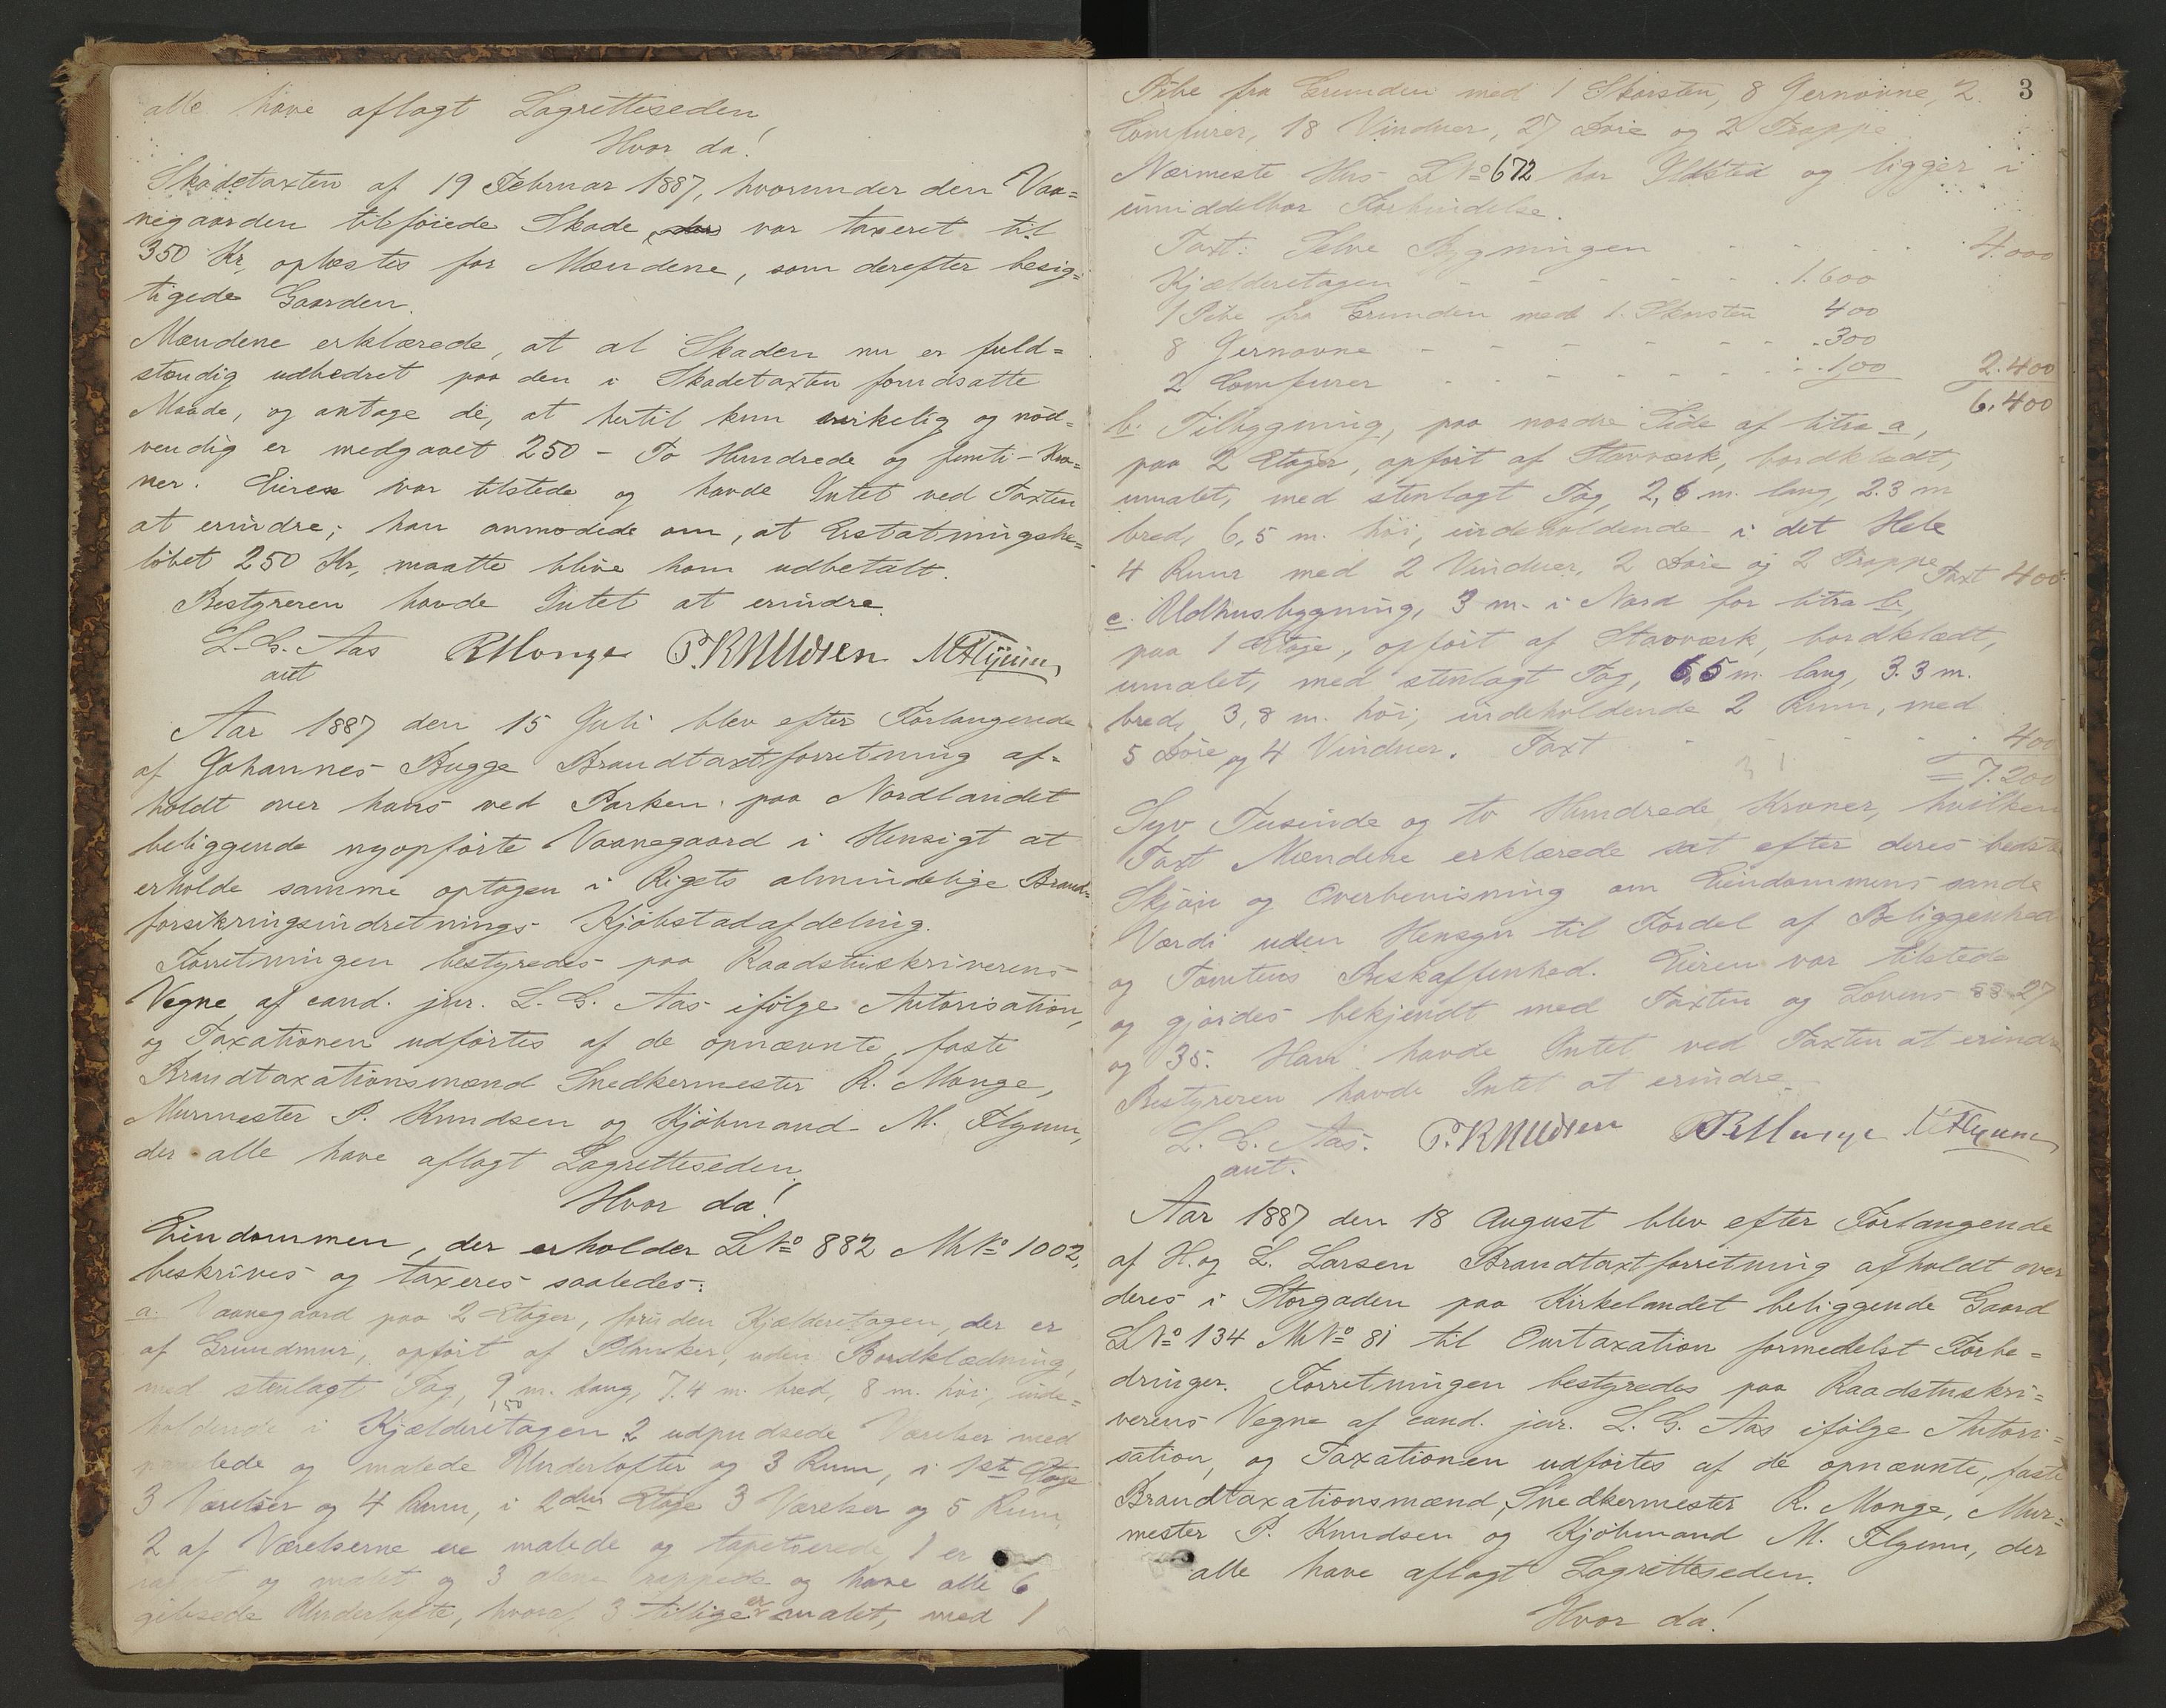 alle have aflagt Lagretteseden,
Hvor da!
Skadetaxten af 19 Februar 1887, hvorunder den Vaa=
negaarden tilføiede Skade var taxeret til
350 Kr, oplæstes for Mændene, som derefter besig=
tigede Gaarden.
Mændene erklærede, at al Skaden nu er fuld=
stændig udbedret paa den i Skadetaxten forudsatte
Maade, og antage de, at hertil kun virkelig og nød=
vendig er medgaaet 250 - To Hundrede og femti - Kro=
ner. Eieren var tilstede og havde Intet ved Taxten
at erindre; han anmodede om, at Erstatningsbe=
løbet 250 Kr, maatte blive ham udbetalt.
Bestyreren havde Intet at erindre.
L. G. Aas R Monge P. Knudsen M Flyum
aut
Aar 1887 den 15 Juli blev efter Forlangende
af Johannes Bugge Brandtaxtforretning af=
holdt over hans ved Parken paa Nordlandet
beliggende nyopførte Vaanegaard i Hensigt at
erholde samme optagen i Rigets almindelige Brand=
forsikringsindretnings Kjøbstadafdeling.
Forretningen bestyredes paa Raadstuskriverens
Vegne af cand. jur. L. G. Aas ifølge Autorisation,
og Taxationen udførtes af de opnævnte, faste
Brandtaxationsmænd Snedkermester R. Monge,
Murmester P. Knudsen og Kjøbmand M. Flyum,
der alle have aflagt Lagretteseden,
Hvor da!
Eiendommen, der erholder LNo 882 MNo 1002,
beskrives og taxeres saaledes:
a. Vaanegaard paa 2 Etager, foruden Kjælderetagen, der er
af Grundmur, opført af Planker, uden Bordklædning,
med stenlagt Tag, 9 m. lang, 7.4 m. bred, 8 m. høi, inde=
1,50
holdende i Kjælderetagen 2 udpudsede Værelser med
panelede og malede Underlofter og 3 Rum, i 1ste Etage
3 Værelser og 4 Rum, i 2den Etage 3 Værelser og 5 Rum,
2 af Værelserne ere malede og tapetserede, 1 er
og malet og 3 alene rappede og have alle 6
gibsede Underlofte, hvoraf 3 tillige er malet, med 1
3
Pibe fra Grunden med 1 Skorsten, 8 Jernovne, 2
Comfurer, 18 Vinduer, 27 Døre og 2 Trappe.
Nærmeste Hus LNo 672 har Ildsted og ligger i
umiddelbar Forbindelse.
Taxt: Selve Bygningen - - - 4.000
Kjælderetagen - - - - - 1.600
1 Pibe fra Grunden med 1. Skorsten 400
8 Jernovne - - - - - - - 300
2 Comfurer - - - - - - - 100 2.400
6.400
b. Tilbygning, paa nordre Side af litra a,
paa 2 Etager, opført af Stavværk, bordklædt,
umalet, med stenlagt Tag, 2,6 m. lang, 2.3 m
bred, 6,5 m. høi, indeholdende i det Hele
4 Rum med 2 Vinduer, 2 Døre og 2 Trappe Taxt 400.
c. Uldhusbygning, 3 m. i Nord for litra b,
paa 1 Etage, opført af Stavværk, bordklædt,
umalet, med stenlagt Tag, 6,5 m. lang, 3.3 m.
bred, 3,8 m. høi, indeholdende 2 Rum, med
5 Døre og 4 Vinduer. Taxt - - - - 400
= 7.200
Syv Tusinde og to Hundrede Kroner, hvilken
Taxt Mændene erklærede sat efter deres bedste
Skjøn og Overbevisning om Eiendommens sande
Værdi uden Hensyn til Fordel af Beliggenhed
og Tomtens Beskaffenhed. Eieren var tilstede
og gjordes bekjendt med Taxten og Lovens §§ 27
og 35. Han havde Intet ved Taxten at erindre
Bestyreren havde Intet at erindre.
L. G. Aas. P. Knudsen R Monge M Flyum
aut.
Aar 1887 den 18 August blev efter Forlangende
af H. og L. Larsen Brandtaxtforretning afholdt over
deres i Storgaden paa Kirkelandet beliggende Gaard
LNo 134 MNo 81 til Omtaxation formedelst Forbe=
dringer. Forretningen bestyredes paa Raadstuskri=
verens Vegne af cand. jur. L. G. Aas ifølge Autori=
sation, og Taxationen udførtes af de opnævnte, faste
Brandtaxationsmænd, Snedkermester R. Monge, Mur=
mester P. Knudsen og Kjøbmand M. Flyum, der
alle have aflagt Lagretteseden.
Hvor da!